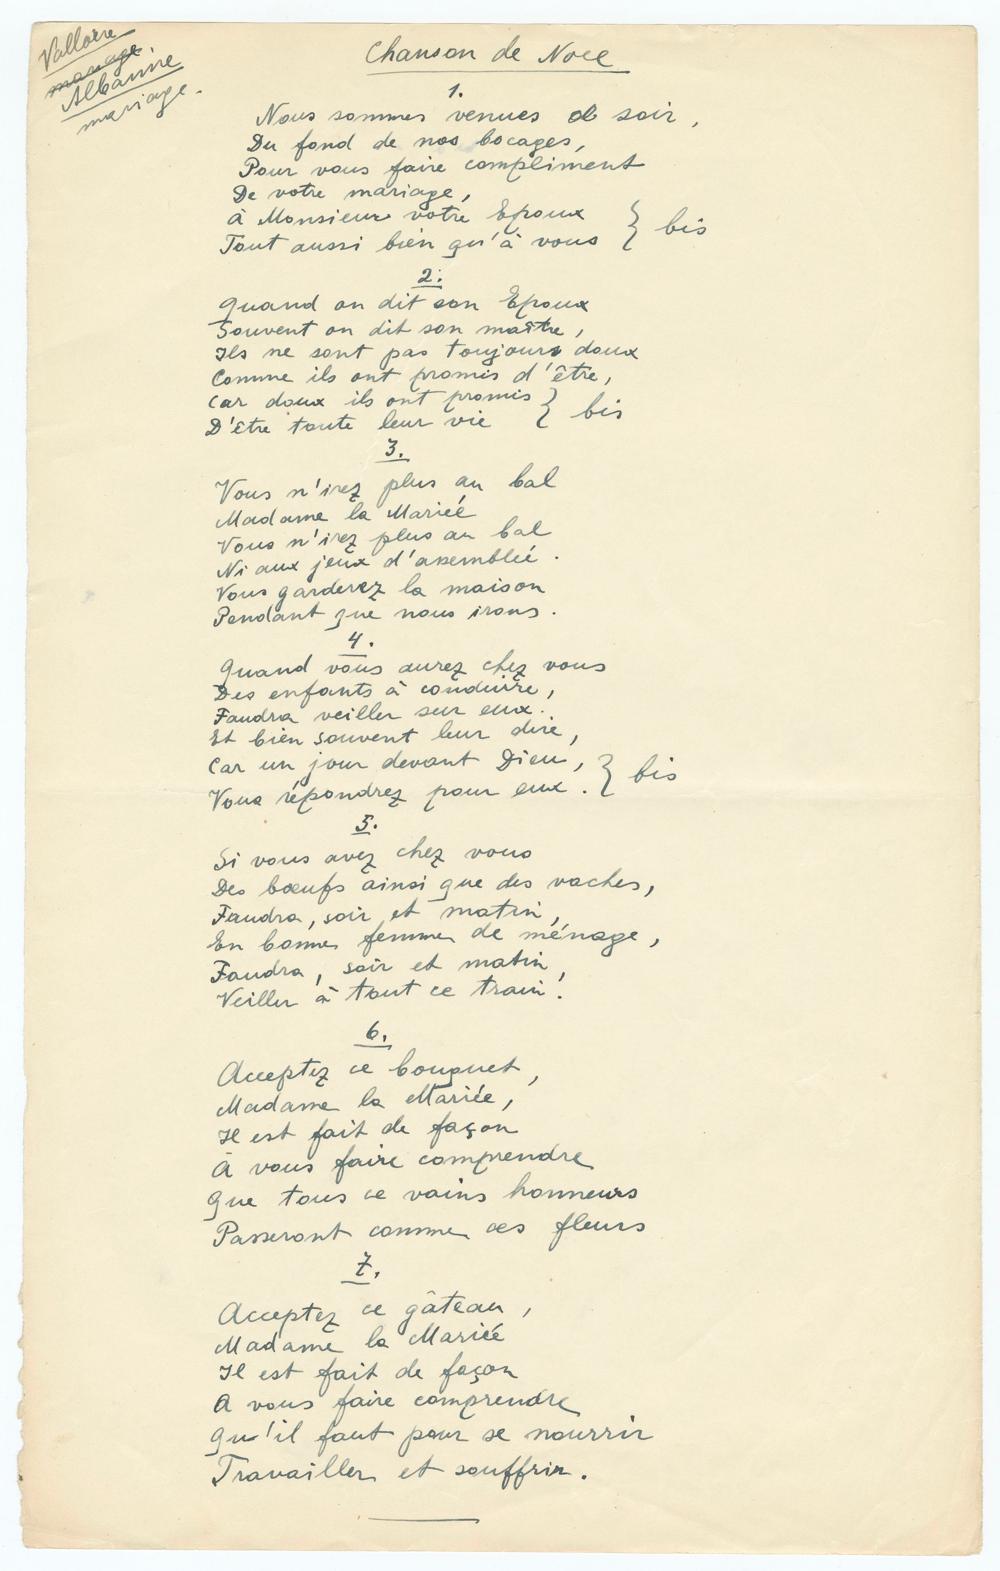 Valloire
mariage
Albanne
mariage.
Chanson de Noce
1.
Nous sommes venues ce soir,
Du fond de nos bocages,
Pour vous faire compliment
De votre mariage,
à Monsieur votre Epoux
Tout aussi bien qu'à vous } bis
2.
Quand on dit son Epoux
Souvent on dit son maître,
Ils ne sont pas toujours doux
Comme ils ont promis d'être,
Car doux ils ont promis
D'être toute leur vie } bis
3.
Vous n'irez plus au bal
Madame la Mariée
Vous n'irez plus au bal
Ni aux jeux d'assemblée.
Vous garderez la maison
Pendant que nous irons.
4.
Quand vous aurez chez vous
Des enfants à conduire,
Faudra veiller sur eux.
Et bien souvent leur dire,
Car un jour devant Dieu,
Vous répondrez pour eux. } bis
5.
Si vous avez chez vous
Des bœufs ainsi que des vaches,
Faudra, soir et matin,
En bonne femme de ménage,
Faudra, soir et matin,
Veiller à tout ce train!
6.
Acceptez ce bouquet,
Madame la Mariée,
Il est fait de façon
À vous faire comprendre
Que tous ce vains honneurs
Passeront comme ces fleurs
7.
Acceptez ce gâteau,
Madame la Mariée
Il est fait de façon
A vous faire comprendre
Qu'il faut pour se nourrir
Travailler et souffrir.